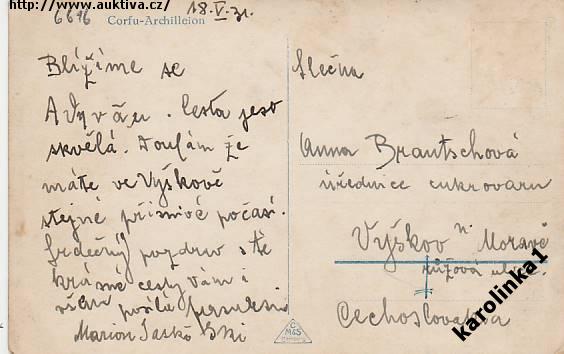 http://www.auktiva.cz/
6616
18.V.31.
Corfu-Archilleion
Blížíme se
cesta jest
skvělá. Doufám že
máte ve Vyškově
stejné příznivé počasí.
Srdečný pozdrav s té
krásné cesty Vám i
všem posílá
Marion
Slečna
Anna Brautschová
úřednice cukrovaru
Vyškov n Moravě
růžová ulice.
Čechoslovakia
karolinka1
M&S